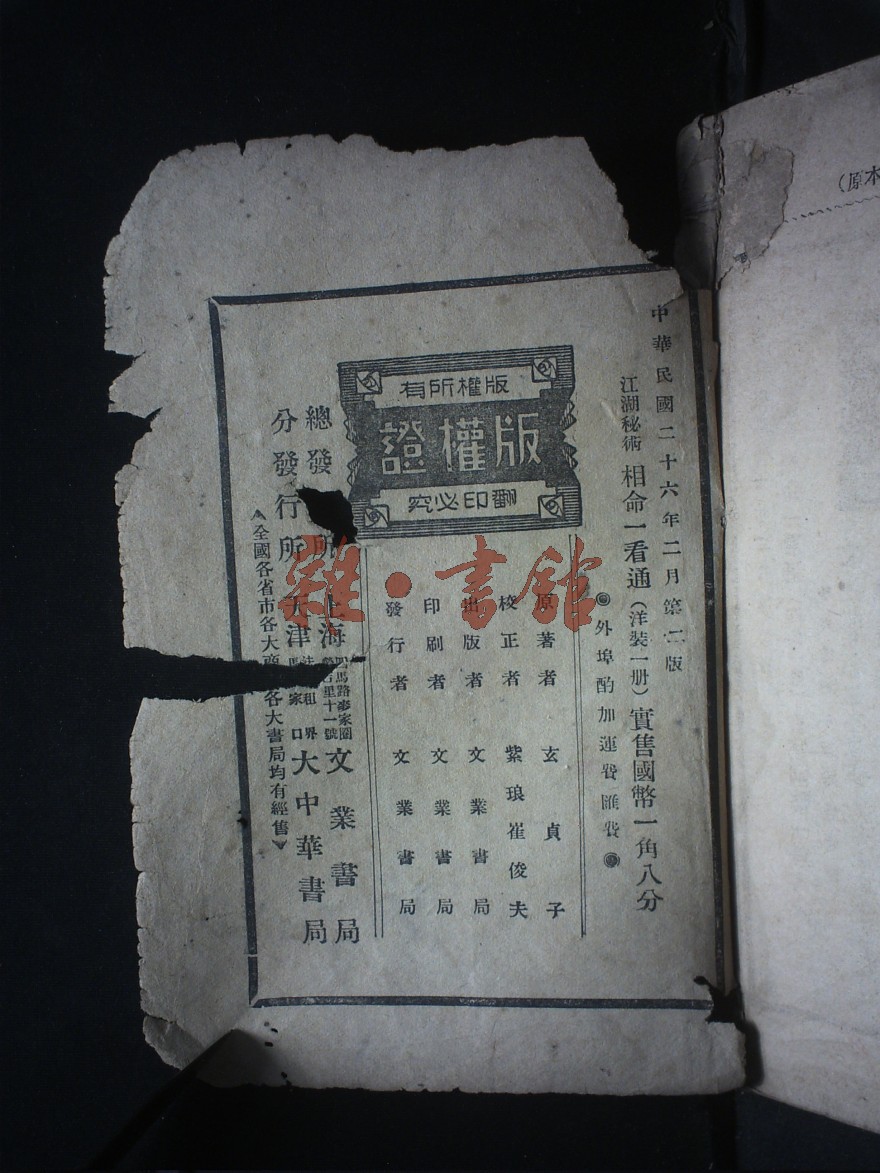 中華民國二十六年二月第二版
江湖秘術 相命一看通(洋裝一册)實售國幣一角八分
外埠酌加運費匯費
版權所有
版權證
翻印必究
原著者 玄貞子
校正者 紫琅崔俊夫
出版者 文業書局
印刷者 文業書局
發行者 文業書局
總發 所 上海 四馬路 家圈 里十一號 文業書局
分發行所 天津 法 租界 家口 大中華書局
全國各省市各大 各大書局均有經售
(原本
雜·書館